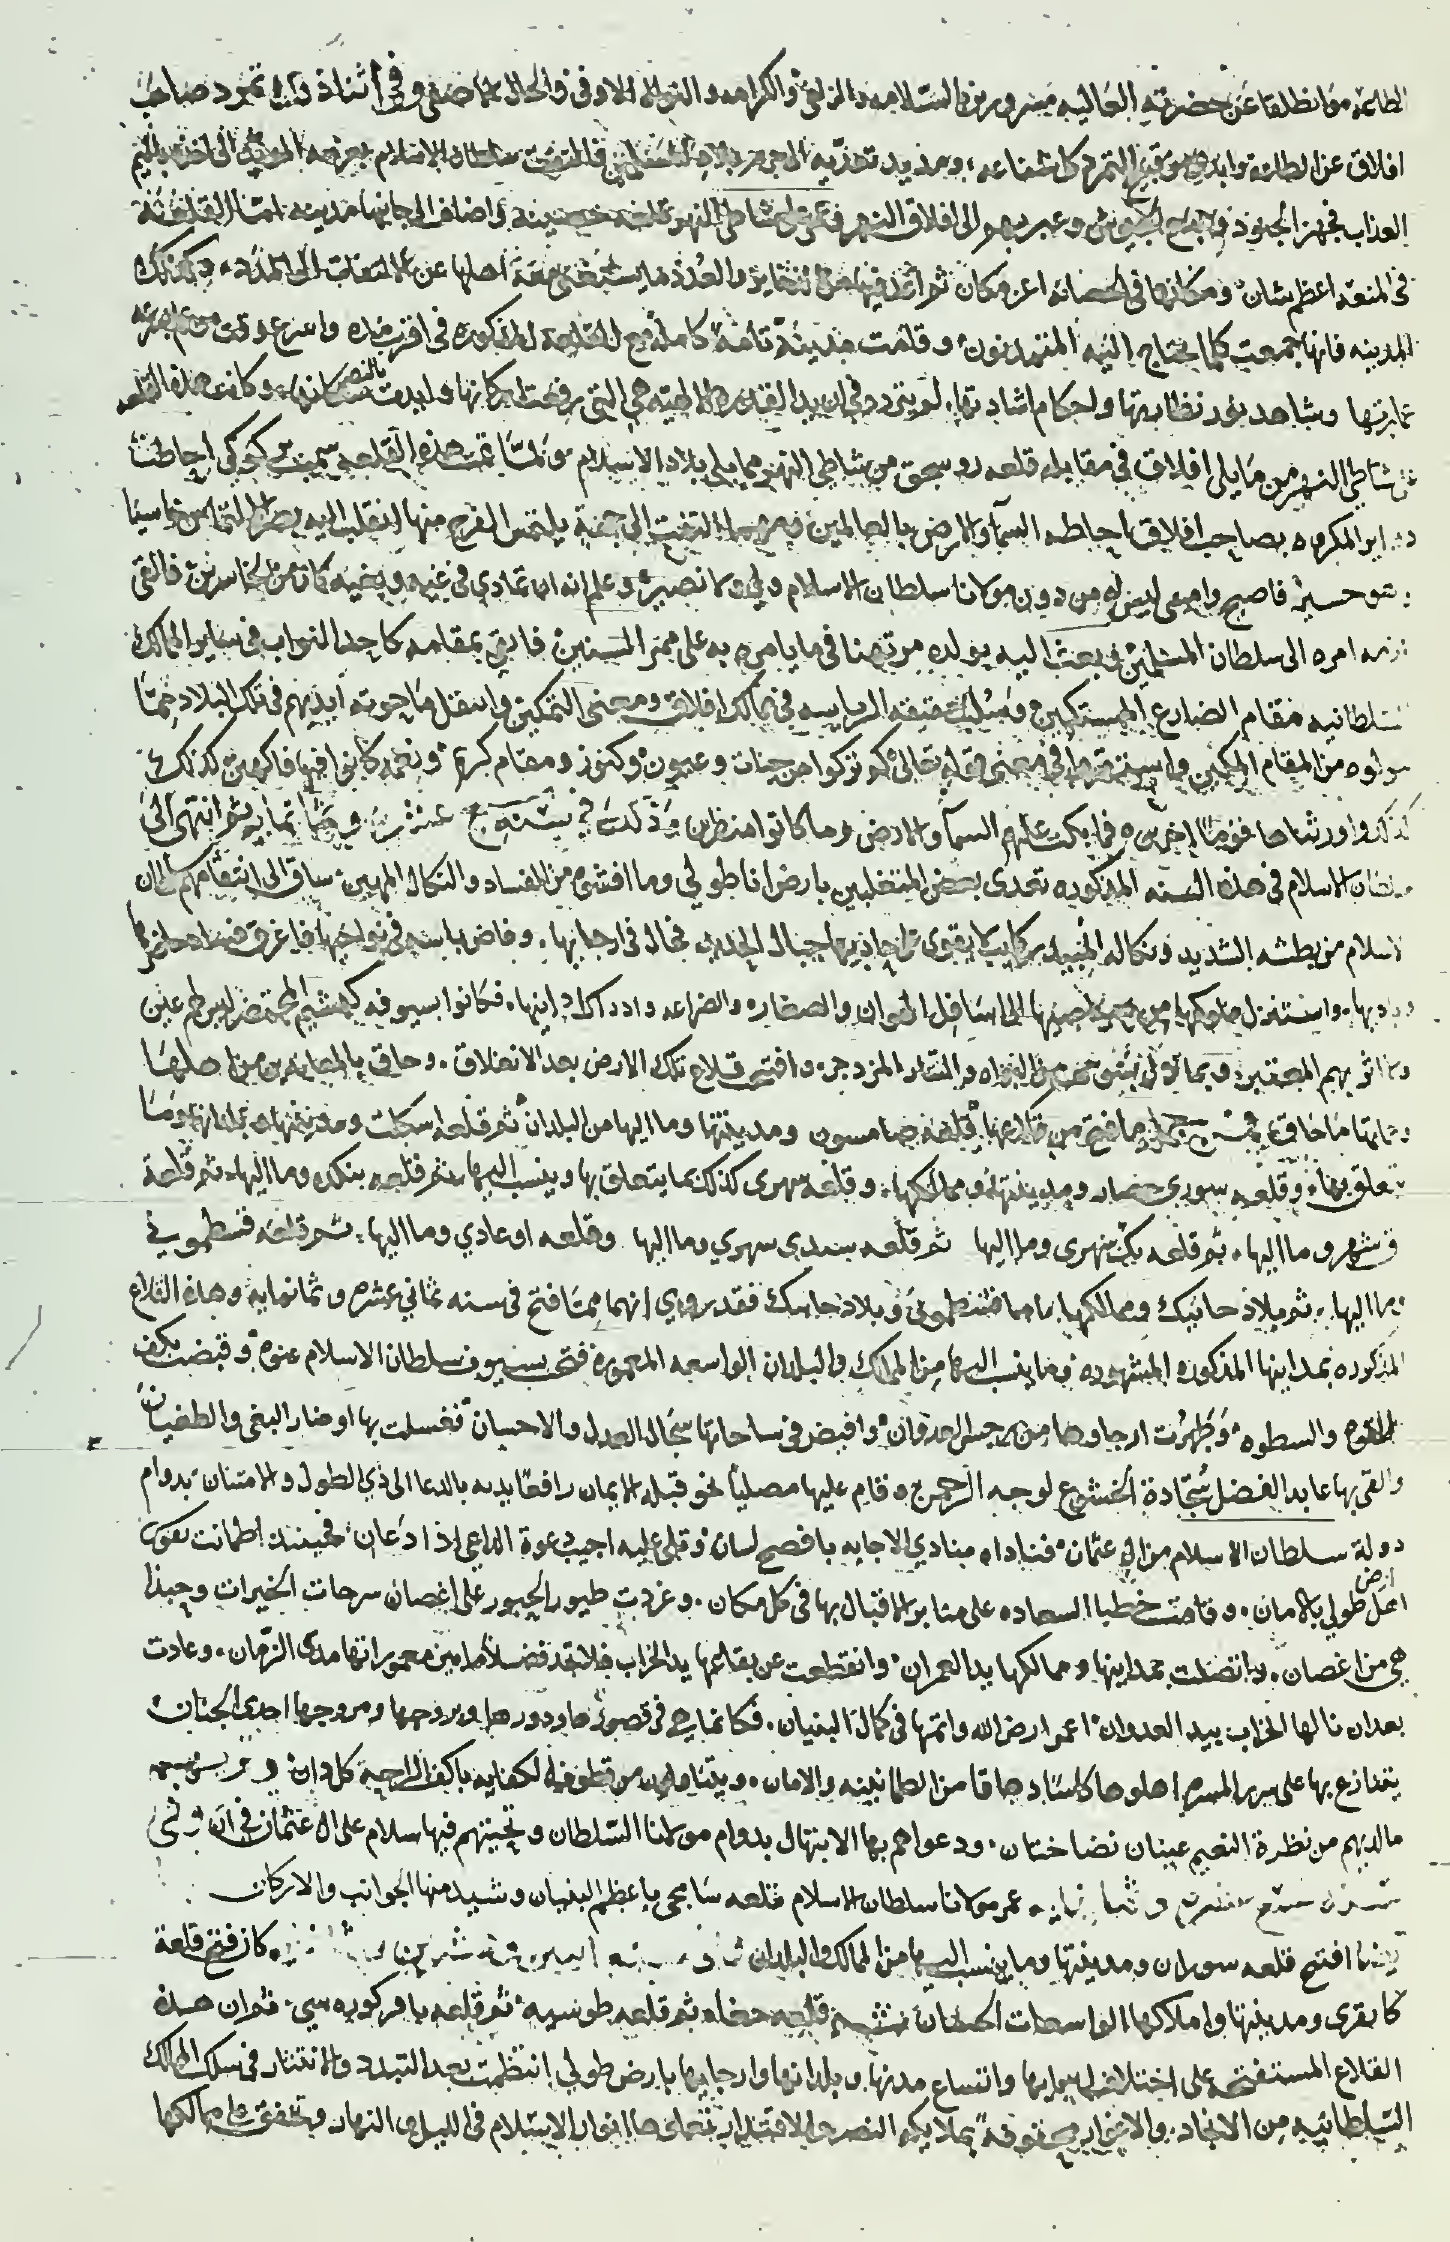 الطاعة وانطلقا عن حضرته العاليه مسرورين بالسلامه والزلفى والكرامه والنوال الاوفى والحال مما صفى وفي أثناء ذلك تمرد صاحب
افلاق عن الطاعة وابدى من قبيح التمرد كل شناعه ومديد تعديه الى حرم بلاد المسلمين فالتفت سلطان الاسلام بعزمه المؤيد الى اخذه باليم
العذاب فجهز الجنود وعبر بهم الى افلاق النهر فبنى على شاطئ النهر قلعه حصينه واضاف الى جانبها مدينه اما القلعة
في المنعة اعظم شان ومكانها في الحصانه اعز مكان ثم أعد فيها من الذخاير والعدد ما يستغنى معه اهلها عن الالتفات الى المدد وكذلك
المدينه فانها جمعت كلما يحتاج اليه المتمدنون وقامت مدينة تامة كاملة مع القلعه المذكوره في اقرب مده واسرع وقت
عمارتها وشاهد بعد نظارتها واحكام اشادتها لم يتردد في ان يد القدرة الالهيه هي التي رفعت اركانها وايدت بالنصر سكانها وكانت هذه القلعه
على شاطئ النهر من ما يلي افلاق في مقابله قلعه روسجق من شاطئ النهر مما يلي بلاد الاسلام ولما تمت هذه القلعه سميت يركوكي احاطت
دواير المكروه بصاحب افلاق احاطه السما والارض بالعالمين فمهما التفت الى جهة يلتمس الفرج منها انقلب اليه بصر الالتماس خاسيا
وهو حسير فاصبح وامسى ليس له من دون مولانا سلطان الاسلام ولي ولا نصير وعلم انه ان تمادى في غيه وبغيه كان من الخاسرين فالقى
ازمه امره الى سلطان المسلمين وبعث اليه بولده مرتهنا في ما يامره به على ممر السنين فابقي بمقامه كاحد النواب في ساير الممالك
السلطانيه مقام الضارع المستكين وسلبت حقيقه الرياسه في ممالك افلاق ومعنى التمكين وانتقل ما حوته ايديهم في تلك البلاد
من المقام المكين في معنى قوله تعالى كم تركوا من جنات وعيون وكنوز ومقام كريم ونعمة كانوا فيها فاكهين كذلك
كذلك واورثناها قوما اخرين فما بكت عليهم السما والارض وما كانوا منظرين وذلك في سنه تسع عشره وثمانمايه ثم انتهى الى
سلطان الاسلام في هذه السنه المذكوره تعدى بعض المتغلبين بارض اناطولي وما افشوه من الفساد والنكال المهين ساق الى انتقامهم سلطان
الاسلام من بطشه الشديد ونكاله المبيد فجال في ارجايها وفاض باسه في نواحيها فاغرق
واستنزل ملوكها من صياصيها الى اسافل الهوان والصغار والضراعه فكانوا بسيوفه كهشيم المحتضر ليس لهم عين
ولا اثر وافتتح قلاع تلك الارض بعد الانغلاق وحاق بالمعاندين من اهلها
ما حاق جمله ما فتح من قلاعها قلعة صامسون ومدينتها وما اليها من البلدان ثم قلعه اسكلت ومدينتها وبلدانها وما
تعلق بها وقلعه سوري حصار ومدينتها وممالكها وقلعه سهرى كذلك بما يتعلق بها وينسب اليها ثم قلعه بنكده وما اليها ثم قلعة
وما اليها ثم قلعه بك شهرى وما اليها ثم قلعه سيدي سهري وما اليها وقلعه اوعادي وما اليها ثم قلعه قسطموني
وما اليها ثم بلاد جانيك وممالكها اما قسطموني وبلاد جانيك فقد روي انهما مما فتح في سنه ثماني عشره وثمانمايه وهذه القلاع
المذكوره بمداينها المذكوره المشهوره وما ينسب اليها من الممالك والبلدان الواسعه المعموره فتحت بسيوف سلطان الاسلام عنوه وقبضت بكف
القوه والسطوه وطهرت ارجاوها من رجس العدوان وافيض في ساحاتها سجال العدل والاحسان فغسلت بها اوضار البغي والطغيان
والقى بها عابد الفضل سجادة الخشوع لوجه الرحمن فقام عليها مصليا نحو قبله الايمان رافعا يديه بالدعا الى ذي الطول والامتنان بدوام
دولة سلطان الاسلام من ال عثمان فناداه منادي الاجابه بافصح لسان وتلى عليه اجيب دعوة الداعي اذا دعان فحينئذ اطمانت نفوس
اهل ارض طولي بالامان وقامت خطبا السعاده على منابر الاقبال بها في كل مكان وغردت طيور الحبور على اغصان سرحات الخيرات وحبذا
هي من اغصان واتصلت بمداينها وممالكها يد العمران وانقطعت عن بقاعها يد الخراب معموراتها مدى الزمان وعادت
بعد ان نالها الخراب بيد العدوان اعمر ارض الله واتمها في كمال البنيان فكانما هي في قصورها ودورها وبروجها ومروجها احدى الجنان
يتنازع بها على سرر المسره اهلوها كاسا دهاقا من الطمانينه والامان ويتناولون من قطوف الكفايه باكف الراحه كل دان
ما لديهم من نظرة النعيم عينان نضاختان ودعواهم بها الابتهال بدوام مولانا السلطان وتحيتهم فيها سلام على ال عثمان في آن
سنه تسع عشره وثمانمايه عمر مولانا سلطان الاسلام قلعه سامجى باعظم البنيان وشيد منها الجوانب والاركان
افتتح قلعه سوران ومدينتها وما ينسب اليها من الممالك والبلدان كان فتح قلعة
كانقرى ومدينتها واملاكها الواسعات ثم قلعه طوسيه ثم قلعه بافركوره سي ثم ان هذه
القلاع المستفتحه على اختلاف واتساع مدنها وبلدانها وارجايها بارض طولي انتظمت بعد التبدد والانتثار في سلك الممالك
السلطانيه من الانجاد والاغوار محفوفه بملايكه النصر والاقتدار انوار الاسلام في الليل والنهار ممالكها